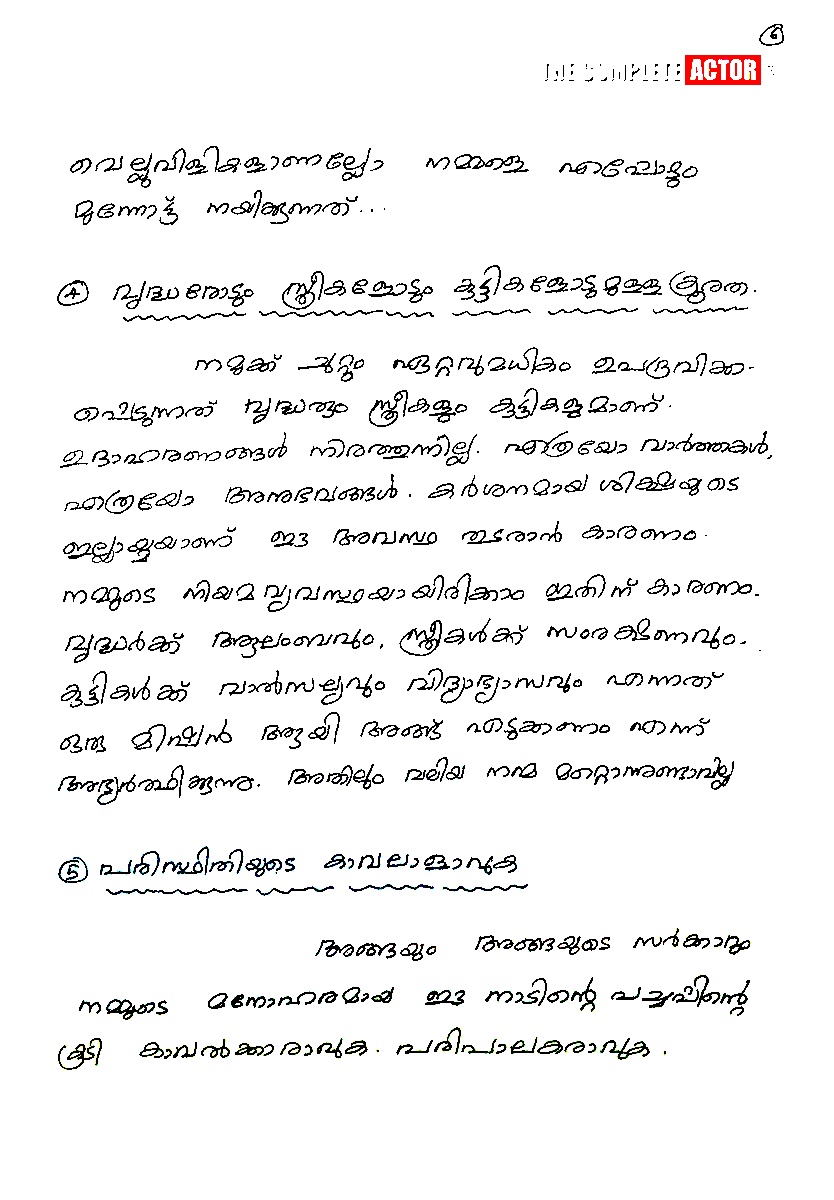 6
THE COMPLETE ACTOR
വെല്ലുവിളികളാണല്ലോ നമ്മളെ എപ്പോഴും
മുന്നോട്ട് നയിക്കുന്നത്...
4 വൃദ്ധരോടും സ്ത്രീകളോടും കുട്ടികളോടുമുള്ള ക്രൂരത.
നമുക്ക് ചുറ്റും ഏറ്റവുമധികം ഉപദ്രവിക്ക-
പ്പെടുന്നത് വൃദ്ധരും സ്ത്രീകളും കുട്ടികളുമാണ്.
ഉദാഹരണങ്ങൾ നിരത്തുന്നില്ല. എത്രയോ വാർത്തകൾ,
എത്രയോ അനുഭവങ്ങൾ. കർശനമായ ശിക്ഷയുടെ
ഇല്ലായ്മയാണ് ഈ അവസ്ഥ തുടരാൻ കാരണം.
നമ്മുടെ നിയമവ്യവസ്ഥയായിരിക്കാം ഇതിന് കാരണം.
വൃദ്ധർക്ക് ആലംബവും, സ്ത്രീകൾക്ക് സംരക്ഷണവും.
കുട്ടികൾക്ക് വാൽസല്യവും വിദ്യാഭ്യാസവും എന്നത്
ഒരു മിഷൻ ആയി അങ്ങ് എടുക്കണം എന്ന്
അഭ്യർത്ഥിക്കുന്നു. അതിലും വലിയ നന്മ മറ്റൊന്നുണ്ടാവില്ല
5 പരിസ്ഥിതിയുടെ കാവലാളാവുക
അങ്ങയും അങ്ങയുടെ സർക്കാരും
നമ്മുടെ മനോഹരമായ ഈ നാടിന്റെ പച്ചപ്പിന്റെ
കൂടി കാവൽക്കാരാവുക. പരിപാലകരാവുക.